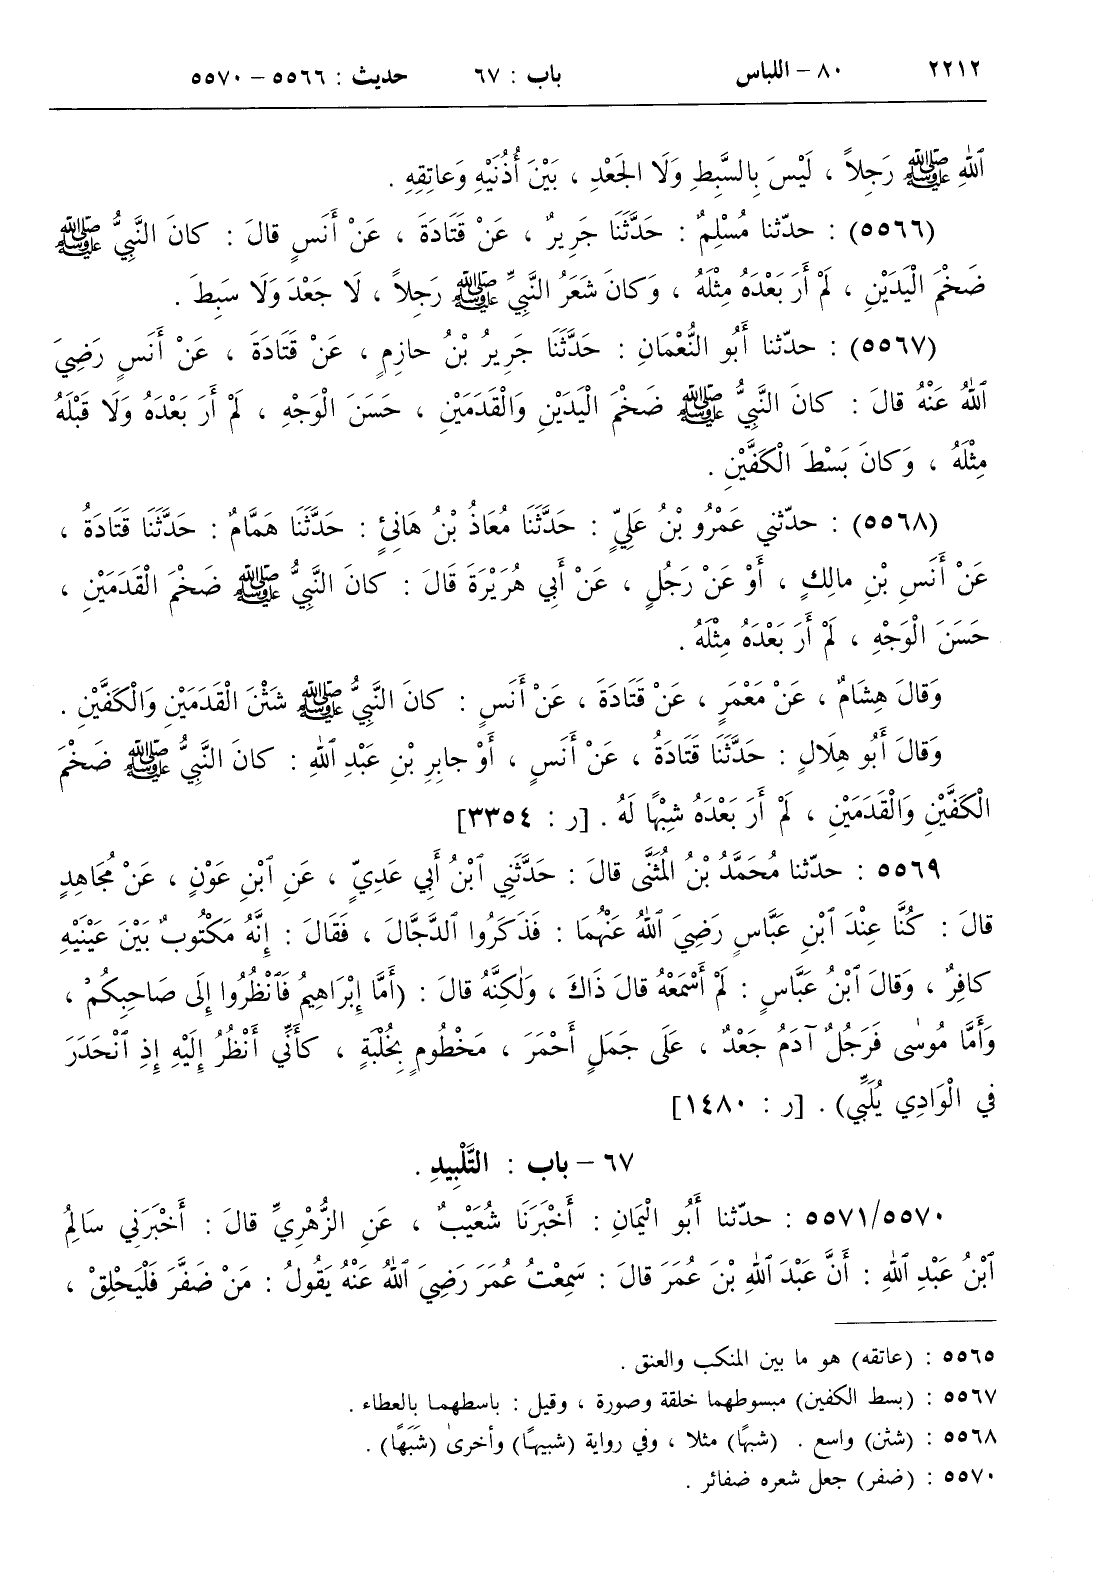 ٢٢١٢ ٨٠ – اللباس باب : ٦٧ حديث : ٥٥٦٦ – ٥٥٧٠
ٱللهِ ﷺ رَجِلاً ، لَيْسَ بِالسَّبِطِ وَلَا الجَعْدِ ، بَيْنَ أُذُنَيْهِ وَعاتِقِهِ .
(٥٥٦٦) : حدّثنا مُسْلِمٌ : حَدَّثَنَا جَرِيرٌ ، عَنْ قَتَادَةَ ، عَنْ أَنَسٍ قالَ : كانَ النَّبِيُّ ﷺ
ضَخْمَ الْيَدَيْنِ ، لَمْ أَرَ بَعْدَهُ مِثْلَهُ ، وَكانَ شَعَرُ النَّبِيِّ ﷺ رَجِلاً ، لَا جَعْدَ وَلَا سَبِطَ .
(٥٥٦٧) : حدّثنا أَبُو النُّعْمَانِ : حَدَّثَنَا جَرِيرُ بْنُ حازِمٍ ، عَنْ قَتَادَةَ ، عَنْ أَنَسٍ رَضِيَ
ٱللهُ عَنْهُ قالَ : كانَ النَّبِيُّ ﷺ ضَخْمَ الْيَدَيْنِ وَالْقَدَمَيْنِ ، حَسَنَ الْوَجْهِ ، لَمْ أَرَ بَعْدَهُ وَلَا قَبْلَهُ
مِثْلَهُ ، وَكانَ بَسْطَ الْكَفَّيْنِ .
(٥٥٦٨) : حدّثني عَمْرُو بْنُ عَلِيٍّ : حَدَّثَنَا مُعَاذُ بْنُ هَانِئٍ : حَدَّثَنَا هَمَّامٌ : حَدَّثَنَا قَتَادَةُ ،
عَنْ أَنَسِ بْنِ مالِكٍ ، أَوْ عَنْ رَجُلٍ ، عَنْ أَبِي هُرَيْرَةَ قَالَ : كانَ النَّبِيُّ ﷺ ضَخْمَ الْقَدَمَيْنِ ،
حَسَنَ الْوَجْهِ ، لَمْ أَرَ بَعْدَهُ مِثْلَهُ .
وَقالَ هِشَامٌ ، عَنْ مَعْمَرٍ ، عَنْ قَتَادَةَ ، عَنْ أَنَسٍ : كانَ النَّبِيُّ ﷺ شَثْنَ الْقَدَمَيْنِ وَالْكَفَّيْنِ .
وَقالَ أَبُو هِلَالٍ : حَدَّثَنَا قَتَادَةُ ، عَنْ أَنَسٍ ، أَوْ جابِرِ بْنِ عَبْدِ ٱللهِ : كانَ النَّبِيُّ ﷺ ضَخْمَ
الْكَفَّيْنِ وَالْقَدَمَيْنِ ، لَمْ أَرَ بَعْدَهُ شِبْهًا لَهُ . [ر : ٣٣٥٤]
٥٥٦٩ : حدّثنا مُحَمَّدُ بْنُ المُثَنَّى قالَ : حَدَّثَنِي ٱبْنُ أَبِي عَدِيٍّ ، عَنِ ٱبْنِ عَوْنٍ ، عَنْ مُجَاهِدٍ
قالَ : كُنَّا عِنْدَ ٱبْنِ عَبَّاسٍ رَضِيَ ٱللهُ عَنْهُمَا : فَذَكَرُوا ٱلدَّجَّالَ ، فَقَالَ : إِنَّهُ مَكْتُوبٌ بَيْنَ عَيْنَيْهِ
كافِرٌ ، وَقالَ ٱبْنُ عَبَّاسٍ : لَمْ أَسْمَعْهُ قالَ ذَاكَ ، وَلٰكِنَّهُ قالَ : (أَمَّا إِبْرَاهِيمُ فَٱنْظُرُوا إِلَى صَاحِبِكُمْ ،
وَأَمَّا مُوسٰى فَرَجُلٌ آدَمُ جَعْدٌ ، عَلَى جَمَلٍ أَحْمَرَ ، مَخْطُومٍ بِخُلْبَةٍ ، كَأَنِّي أَنْظُرُ إِلَيْهِ إِذِ ٱنْحَدَرَ
في الْوَادِي يُلَبِّي) . [ر : ١٤٨٠]
٦٧ – باب : التَّلْبِيدِ .
٥٥٧١/٥٥٧٠ : حدّثنا أَبُو الْيَمَانِ : أَخْبَرَنَا شُعَيْبٌ ، عَنِ الزُّهْرِيِّ قالَ : أَخْبَرَنِي سَالِمُ
ٱبْنُ عَبْدِ ٱللهِ : أَنَّ عَبْدَ ٱللهِ بْنَ عُمَرَ قالَ : سَمِعْتُ عُمَرَ رَضِيَ ٱللهُ عَنْهُ يَقُولُ : مَنْ ضَفَّرَ فَلْيَحْلِقْ ،
٥٥٦٥ : (عاتقه) هو ما بين المنكب والعنق .
٥٥٦٧ : (بسط الكفين) مبسوطهما خلقة وصورة ، وقيل : باسطهما بالعطاء .
٥٥٦٨ : (شثن) واسع . (شبهًا) مثلا ، وفي رواية (شبيهًا) وأخرىٰ (شَبَهًا) .
٥٥٧٠ : (ضفر) جعل شعره ضفائر .